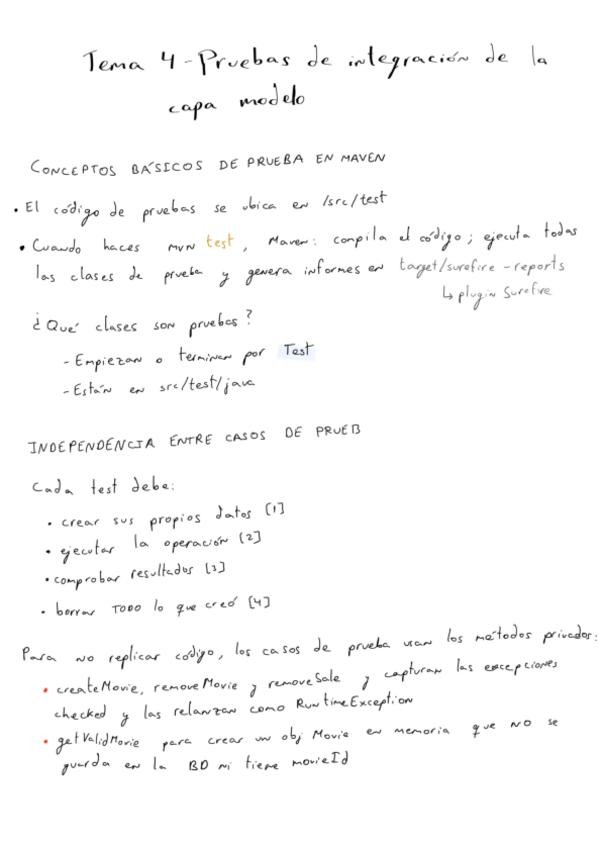 Tema 4 - Pruebas de integración de la
capa modelo
CONCEPTOS BÁSICOS DE PRUEBA EN MAVEN
• El código de pruebas se ubica en /src/test
• Cuando haces mvn test, Maven: compila el código; ejecuta todas
las clases de prueba y genera informes en target/surefire-reports
↳ plugin Surefire
¿Qué clases son pruebas?
- Empiezan o terminan por Test
- Están en src/test/java
INDEPENDENCIA ENTRE CASOS DE PRUEB
Cada test debe:
• crear sus propios datos [1]
• ejecutar la operación [2]
• comprobar resultados [3]
• borrar TODO lo que creó [4]
Para no replicar código, los casos de prueba usan los métodos privados:
• createMovie, removeMovie y removeSale y capturan las excepciones
checked y las relanzan como RuntimeException
• getValidMovie para crear un obj Movie en memoria que NO se
guarda en la BD ni tiene movieId